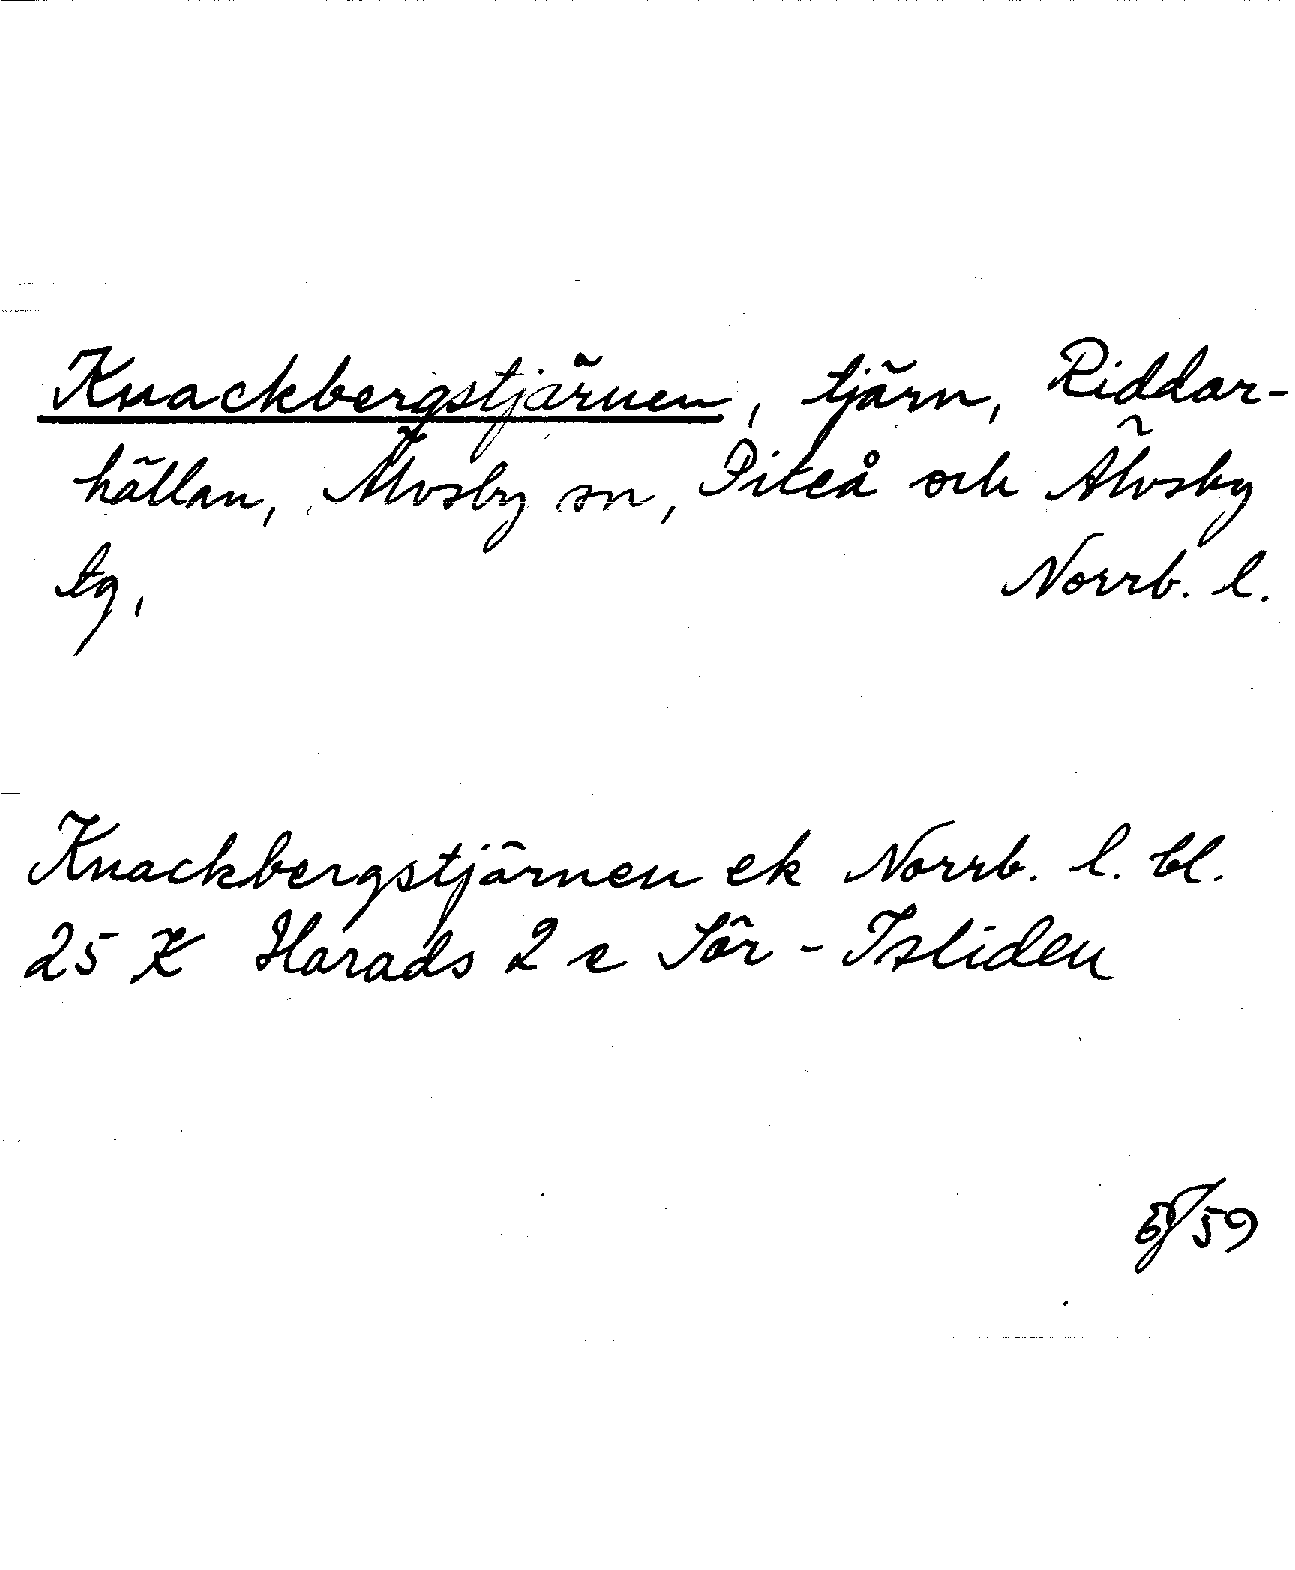 Knackbergstjärnen, tjärn, Riddar-
hällan, Älvsby sn, Piteå och Älvsby
tg, Norrb. l.
Knackbergstjärnen ek Norrb. l. bl.
25 K Harads 2 c Sör-Isliden
59